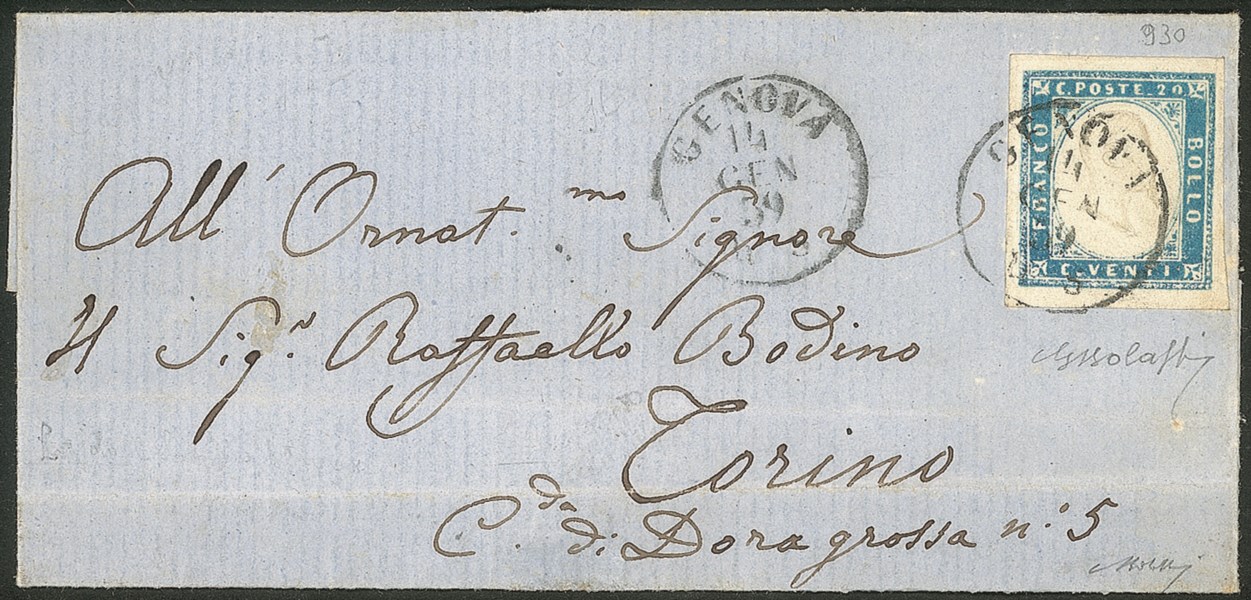 930
C. POSTE. 20
FRANCO
BOLLO
C. VENTI
GENOVA
14
GEN
59
S
GENOVA
GEN
9
S
All' Ornat.mo Signore
Il Sig.r Raffaello Bodino
Torino
C.da di Dora grossa n.° 5